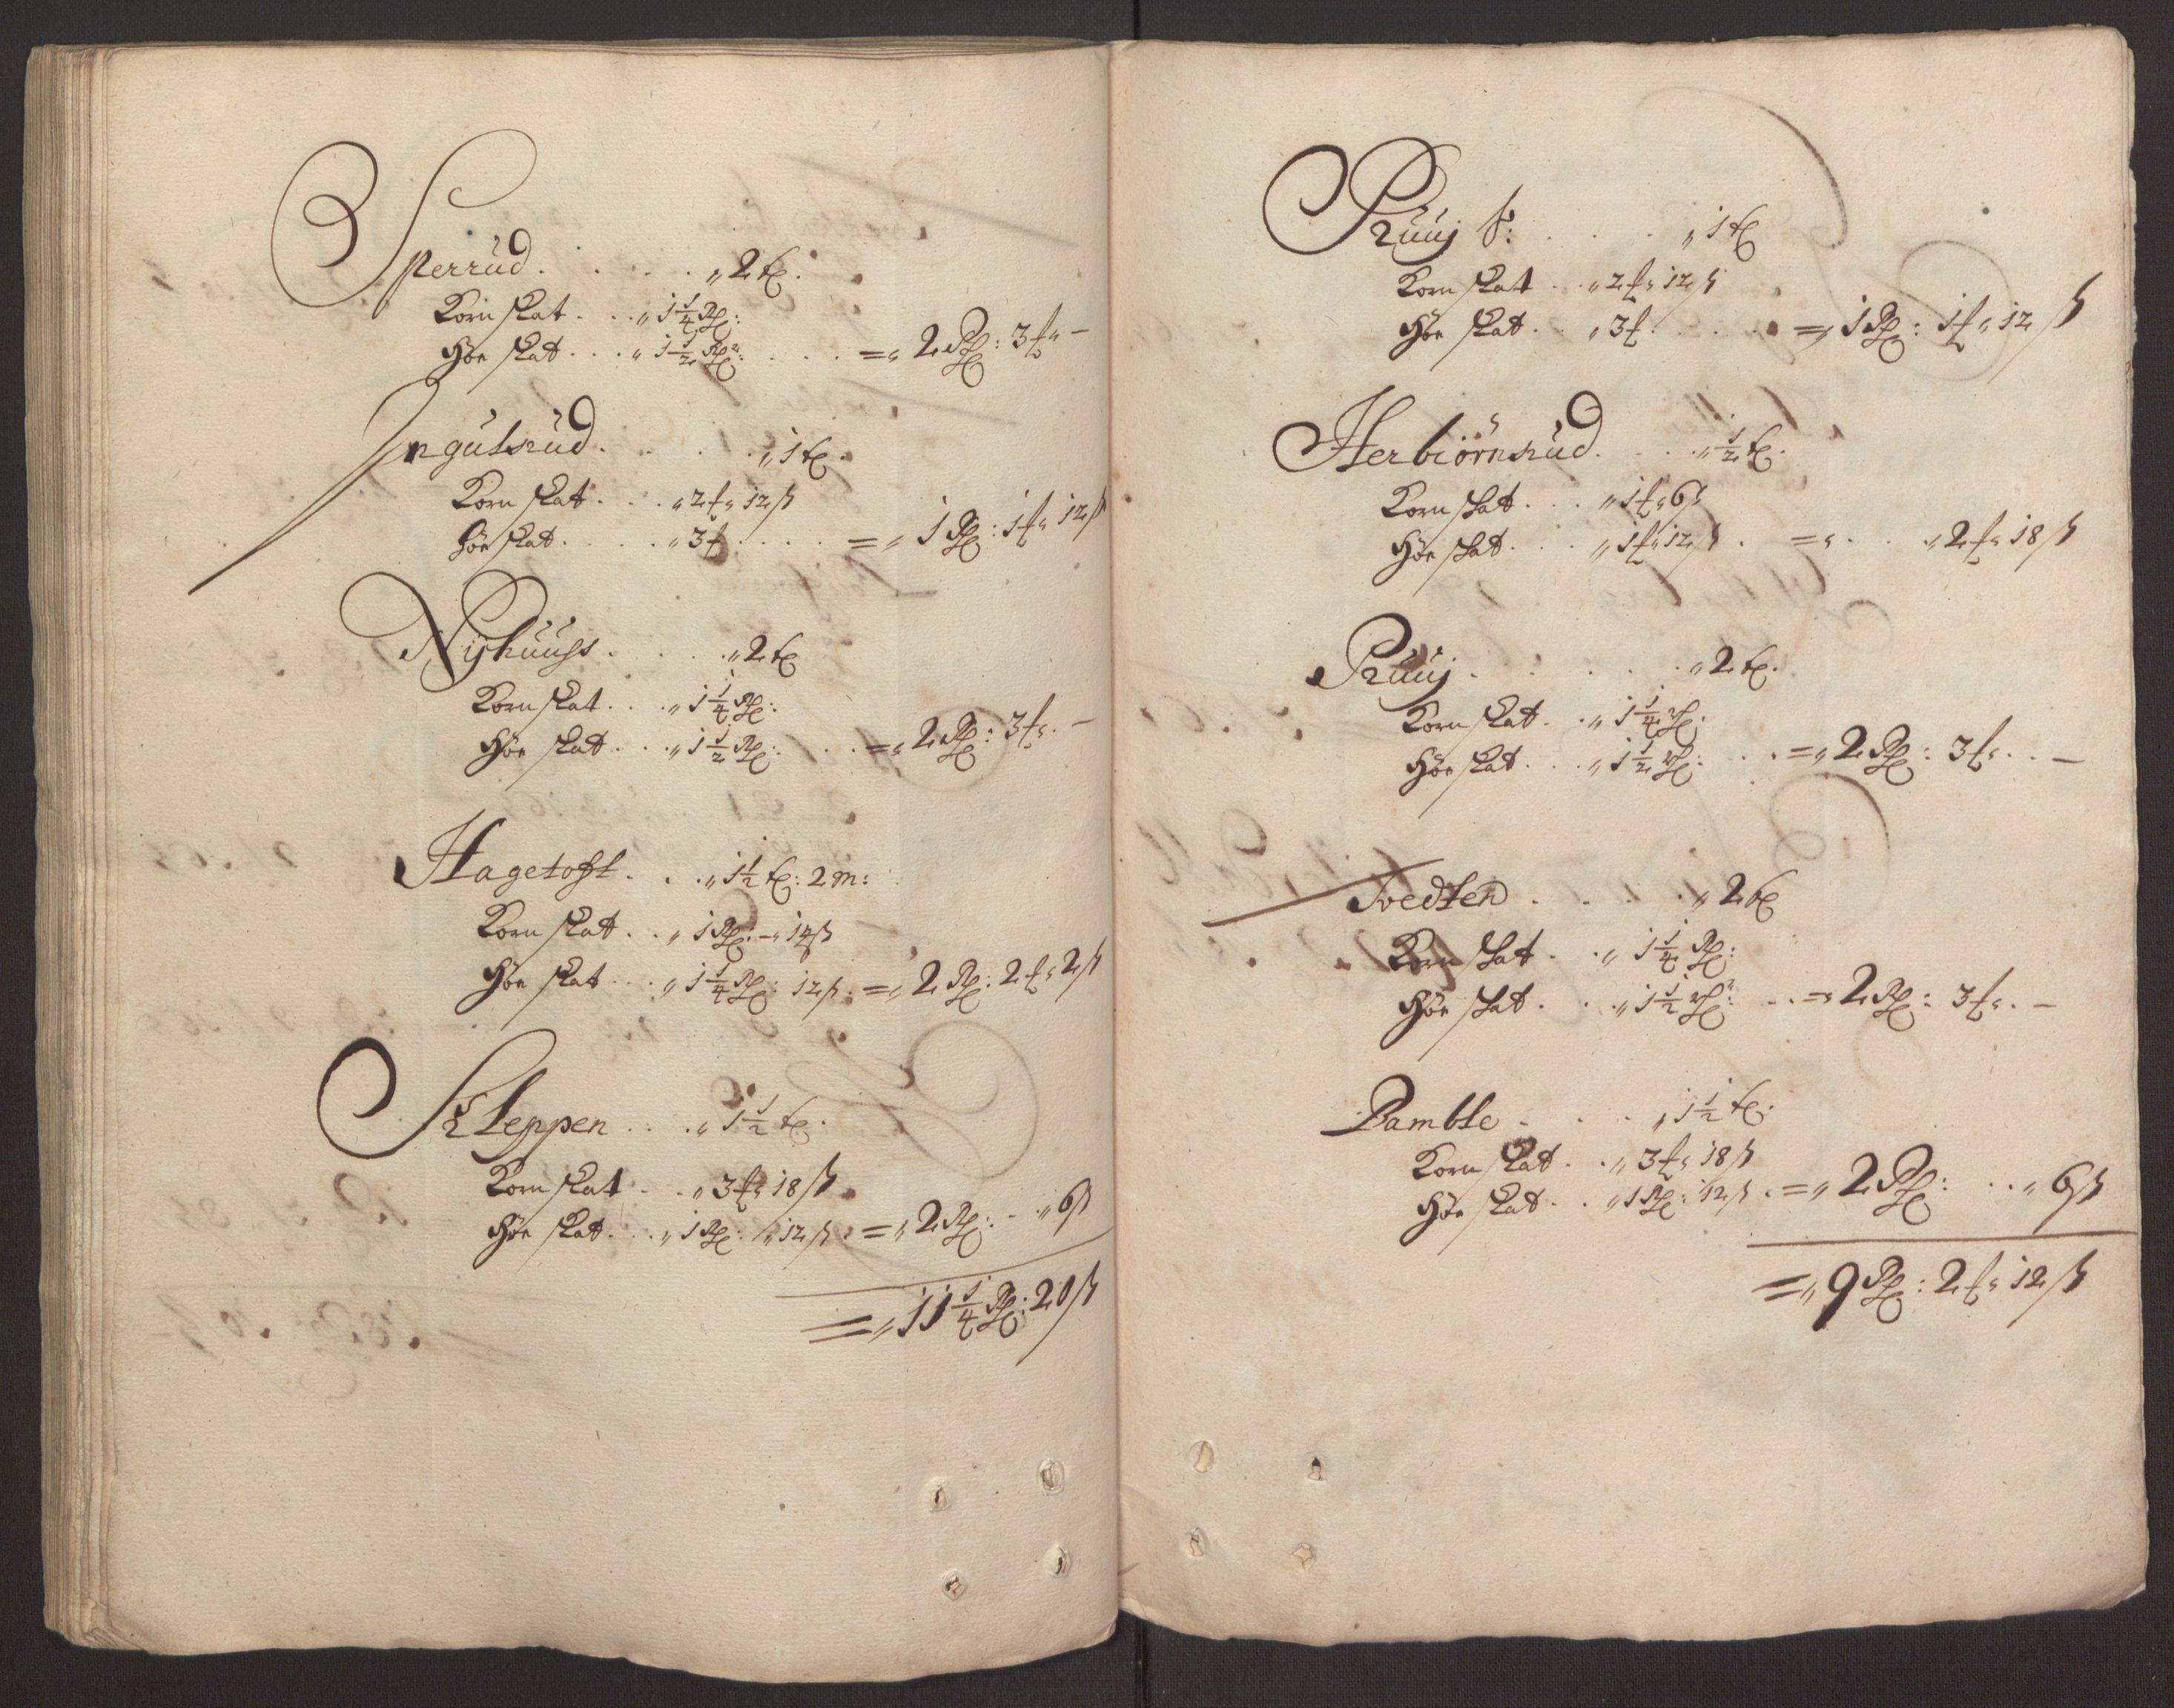 Sperrud . . . . . „ 2 t.
Korn skat . . „ 1 1/4 Rd:
Höe skat . . . „ 1 1/2 Rd: . . . = „ 2 Rd: 3 f „ —
Ingulsrud . . . . „ 1 t.
Korn skat . . . „ 2 f „ 12 ß
Höe skat . . . . „ 3 f . . . . = „ 1 Rd: 1 f „ 12 ß
Nÿhuuss . . . . „ 2 t
Korn skat . . . „ 1 1/4 Rd:
Höe skat . . . „ 1 1/2 Rd: . . = „ 2 Rd: 3 f „ . —
Hagetoft . . . „ 1 1/2 t: 2 m:
Korn skat . . „ 1 Rd: – „ 14 ß
Höe skat . . . „ 1 1/4 Rd: 12 ß : = „ 2 Rd: 2 f „ 2 ß
Kleppen . . . „ 1 1/2 t.
Korn skat . . „ 3 f „ 18 ß
Höe skat . . . „ 1 Rd: „ 12 ß . = „ 2 Rd: . . „ 6 ß
= „ 11 1/4 Rd: 20 ß
Pruuj S: . . . „ 1 t
Korn skat . . „ 2 f „ 12 ß
Höe skat . . „ 3 f . . . . = „ 1 Rd: 1 f „ 12 ß
Herbiörnsrud . . . „ 1/2 t.
Korn skat . . . „ 1 f „ 6 ß
Höe skat . . . „ 1 f „ 12 ß . = „ . . „ 2 f „ 18 ß
Pruuj . . . . . „ 2 t.
Korn skat . . „ 1 1/4 Rd:
Höe skat . . . „ 1 1/2 Rd: . . = „ 2 Rd: 3 f „ . . —
Tvedten . . . . „ 2 t
Korn skat . . „ 1 1/4 Rd:
Höe skat . . . „ 1 1/2 Rd: . . = „ 2 Rd: 3 f „ . —
Bamble . . . „ 1 1/2 t.
Korn skat . . „ 3 f „ 18 ß
Höe skat . . „ 1 Rd: 12 ß . = „ 2 Rd: . . „ 6 ß
= „ 9 Rd: 2 f „ 12 ß